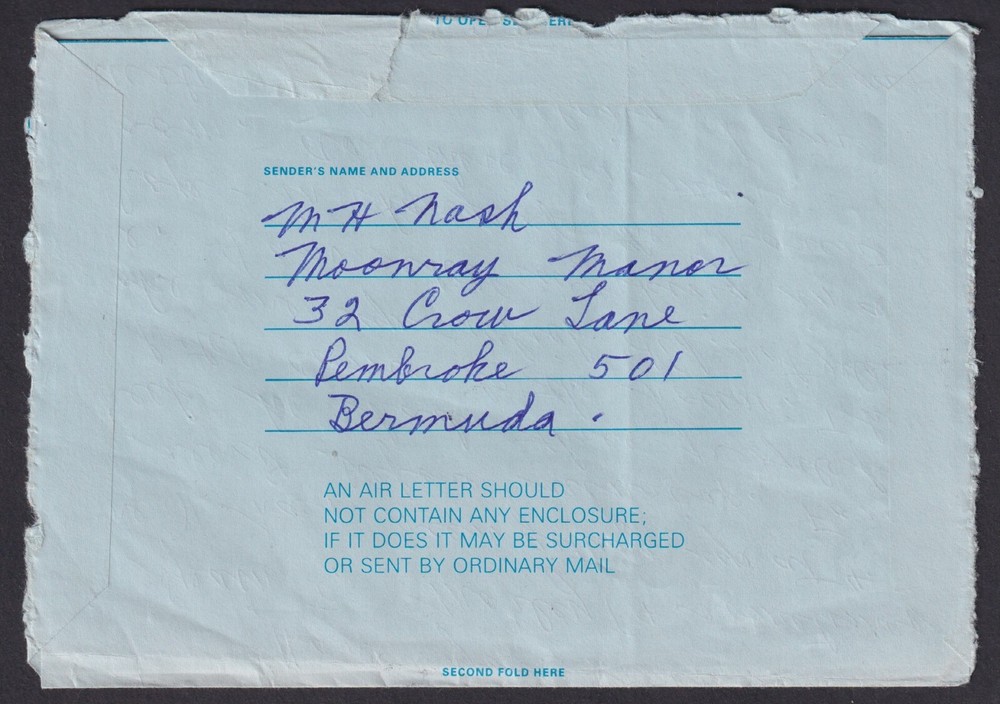 TO OPEN
SENDER'S NAME AND ADDRESS
MH Nash
Moonray Manor
32 Crow Lane
Pembroke 501
Bermuda.
AN AIR LETTER SHOULD
NOT CONTAIN ANY ENCLOSURE;
IF IT DOES IT MAY BE SURCHARGED
OR SENT BY ORDINARY MAIL
SECOND FOLD HERE